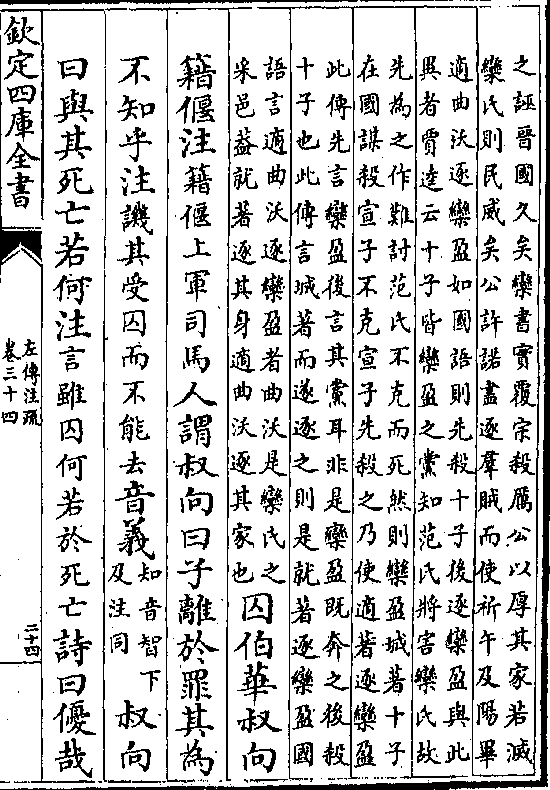 之誣晉國久矣欒書實覆宗殺厲公以厚其家若滅
欒氏則民威矣公許諾盡逐羣賊而使祈午及陽畢
適曲沃逐欒盈如國語則先殺十子後逐欒盈與此
異者賈逵云十子皆欒盈之黨知范氏將害欒氏故
先為之作難討范氏不克而死然則欒盈城著十子
在國謀殺宣子不克宣子先殺之乃使適著逐欒盈
此傳先言欒盈後言其黨耳非是欒盈既奔之後殺
十子也此傳言城著而遂逐之則是就著逐欒盈國
語言適曲沃逐欒盈者曲沃是欒氏之
采邑葢就著逐其身適曲沃逐其家也
囚伯華叔向
籍偃注籍偃上軍司馬人謂叔向曰子離於罪其為
不知乎注譏其受囚而不能去音義
知音智下
及注同
叔向
曰與其死亡若何注言雖囚何若於死亡詩曰優哉
欽定四庫全書
左傳注疏
卷三十四
二十四